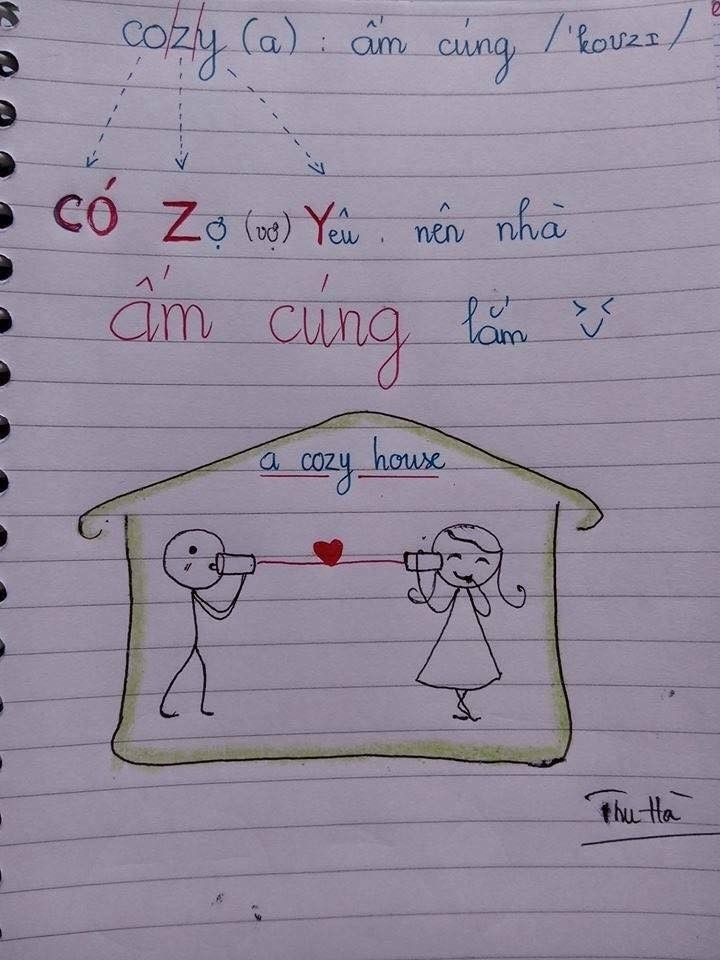 cozy (a) : ấm cúng /'kouzɪ/
CÓ Zợ (vợ) Yêu . nên nhà
ấm cúng lắm
a cozy house
Thu Hà